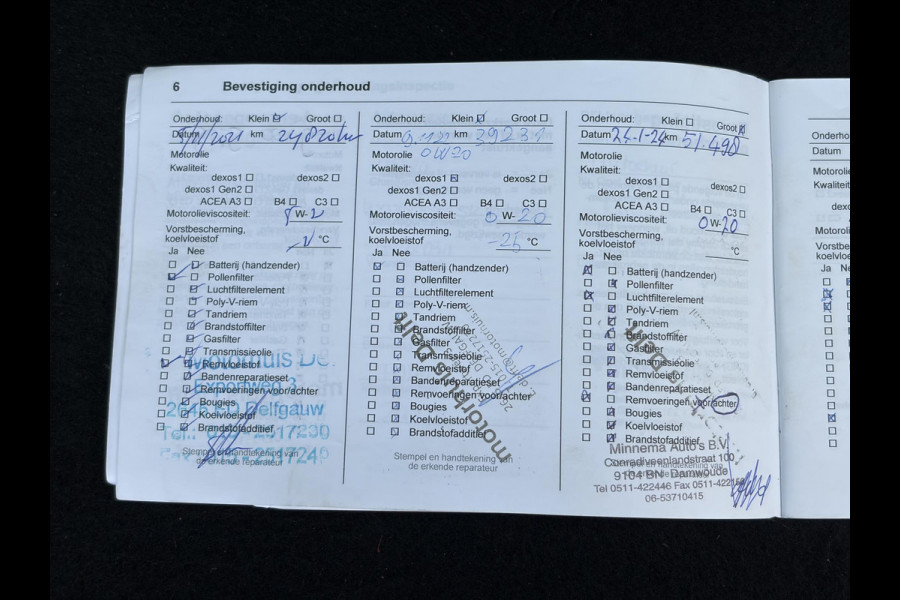 6 Bevestiging onderhoud
Onderhoud: Klein Groot
Datum km
Motorolie
Kwaliteit:
dexos1 dexos2
dexos1 Gen2
ACEA A3 B4 C3
Motorolieviscositeit: W-
Vorstbescherming,
koelvloeistof °C
Ja Nee
Batterij (handzender)
Pollenfilter
Luchtfilterelement
Poly-V-riem
Tandriem
Brandstoffilter
Gasfilter
Transmissieolie
Remvloeistof
Bandenreparatieset
Remvoeringen voor/achter
Bougies
Koelvloeistof
Brandstofadditief
Exportweg 3
Delfgauw
Stempel en handtekening van
de erkende reparateur
Onderhoud: Klein Groot
Datum km 39231
Motorolie 0W20
Kwaliteit:
dexos1 dexos2
dexos1 Gen2
ACEA A3 B4 C3
Motorolieviscositeit: 0 W-20
Vorstbescherming,
koelvloeistof -25 °C
Ja Nee
Batterij (handzender)
Pollenfilter
Luchtfilterelement
Poly-V-riem
Tandriem
Brandstoffilter
Gasfilter
Transmissieolie
Remvloeistof
Bandenreparatieset
Remvoeringen voor/achter
Bougies
Koelvloeistof
Brandstofadditief
motorhuis Delft
Stempel en handtekening van
de erkende reparateur
Onderhoud: Klein Groot
Datum 24-1-24 km 51.498
Motorolie
Kwaliteit:
dexos1 dexos2
dexos1 Gen2
ACEA A3 B4 C3
Motorolieviscositeit: 0 W-20
Vorstbescherming,
koelvloeistof °C
Ja Nee
Batterij (handzender)
Pollenfilter
Luchtfilterelement
Poly-V-riem
Tandriem
Brandstoffilter
Gasfilter
Transmissieolie
Remvloeistof
Bandenreparatieset
Remvoeringen voor/achter
Bougies
Koelvloeistof
Brandstofadditief
Minnema Auto's B.V.
Conradiveenlandstraat 100
9104 BN Damwoude
Tel 0511-422446 Fax
06-53710415
Onderho
Datum
Motorolie
Kwaliteit
Ja Ne